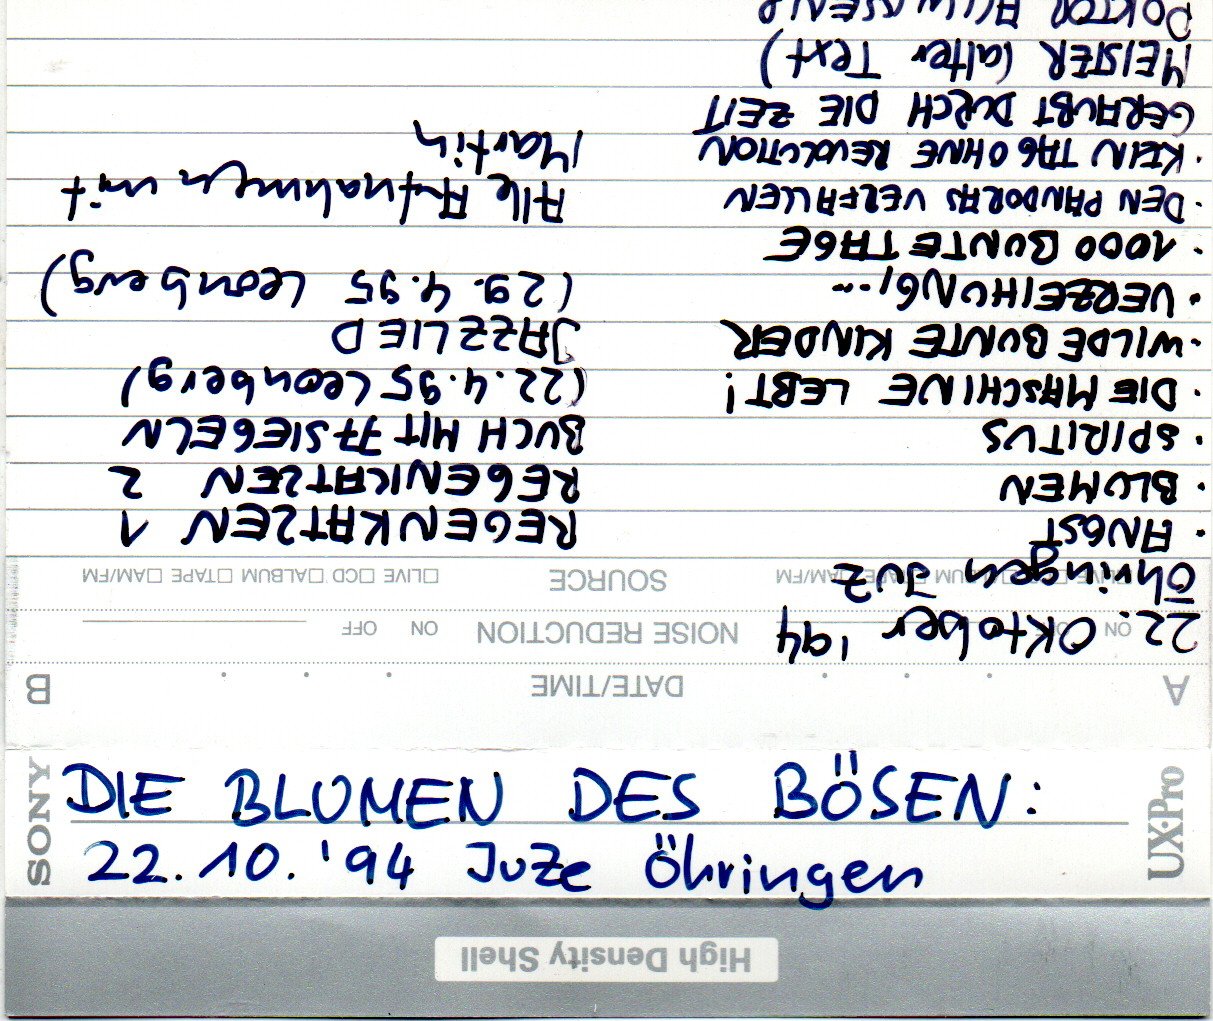 SONY
DIE BLUMEN DES BÖSEN:
22.10.'94 JuZe Öhringen
UX·Pro
High Density Shell
A DATE/TIME B
22. Oktober '94
ON OFF NOISE REDUCTION ON OFF
Öhringen JUZ
LIVE CD ALBUM TAPE AM/FM SOURCE LIVE CD ALBUM TAPE AM/FM
· ANGST
· BLUMEN
· SPIRITUS
· DIE MASCHINE LEBT!
· WILDE BUNTE KINDER
· VERZEIHUNG,...
· 1000 BUNTE TAGE
· DEN PANDORAS VERFALLEN
· KEIN TAG OHNE REVOLUTION
GERAUBT DURCH DIE ZEIT
MEISTER (alter Text)
DOKTOR ALLWISSEND
REGENKATZEN 1
REGENKATZEN 2
BUCH MIT 77 SIEGELN
(22.4.95 Leonberg)
JAZZLIED
(29.4.95 Leonberg)
Alle Aufnahmen mit
Martin